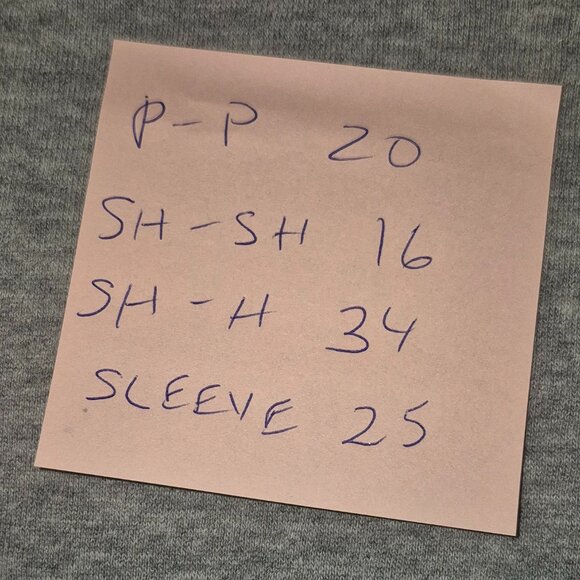 P-P 20
SH-SH 16
SH-H 34
SLEEVE 25